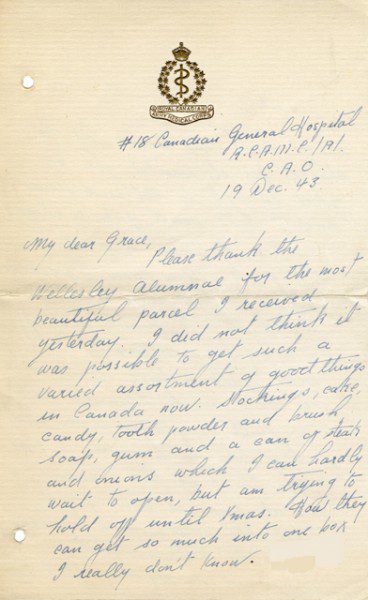 ROYAL CANADIAN
ARMY MEDICAL CORPS
#18 Canadian General Hospital
R.C.A.M.C./A1.
C.A.O.
19 Dec. 43
My dear Grace,
Please thank the
Wellesley Alumnae for the most
beautiful parcel I received
yesterday. I did not think it
was possible to get such a
varied assortment of good things
in Canada now. Stockings, cake,
candy, tooth powder and brush
soap, gum and a can of steak
and onions which I can hardly
wait to open, but am trying to
hold off until Xmas. How they
can get so much into one box
I really don't know.